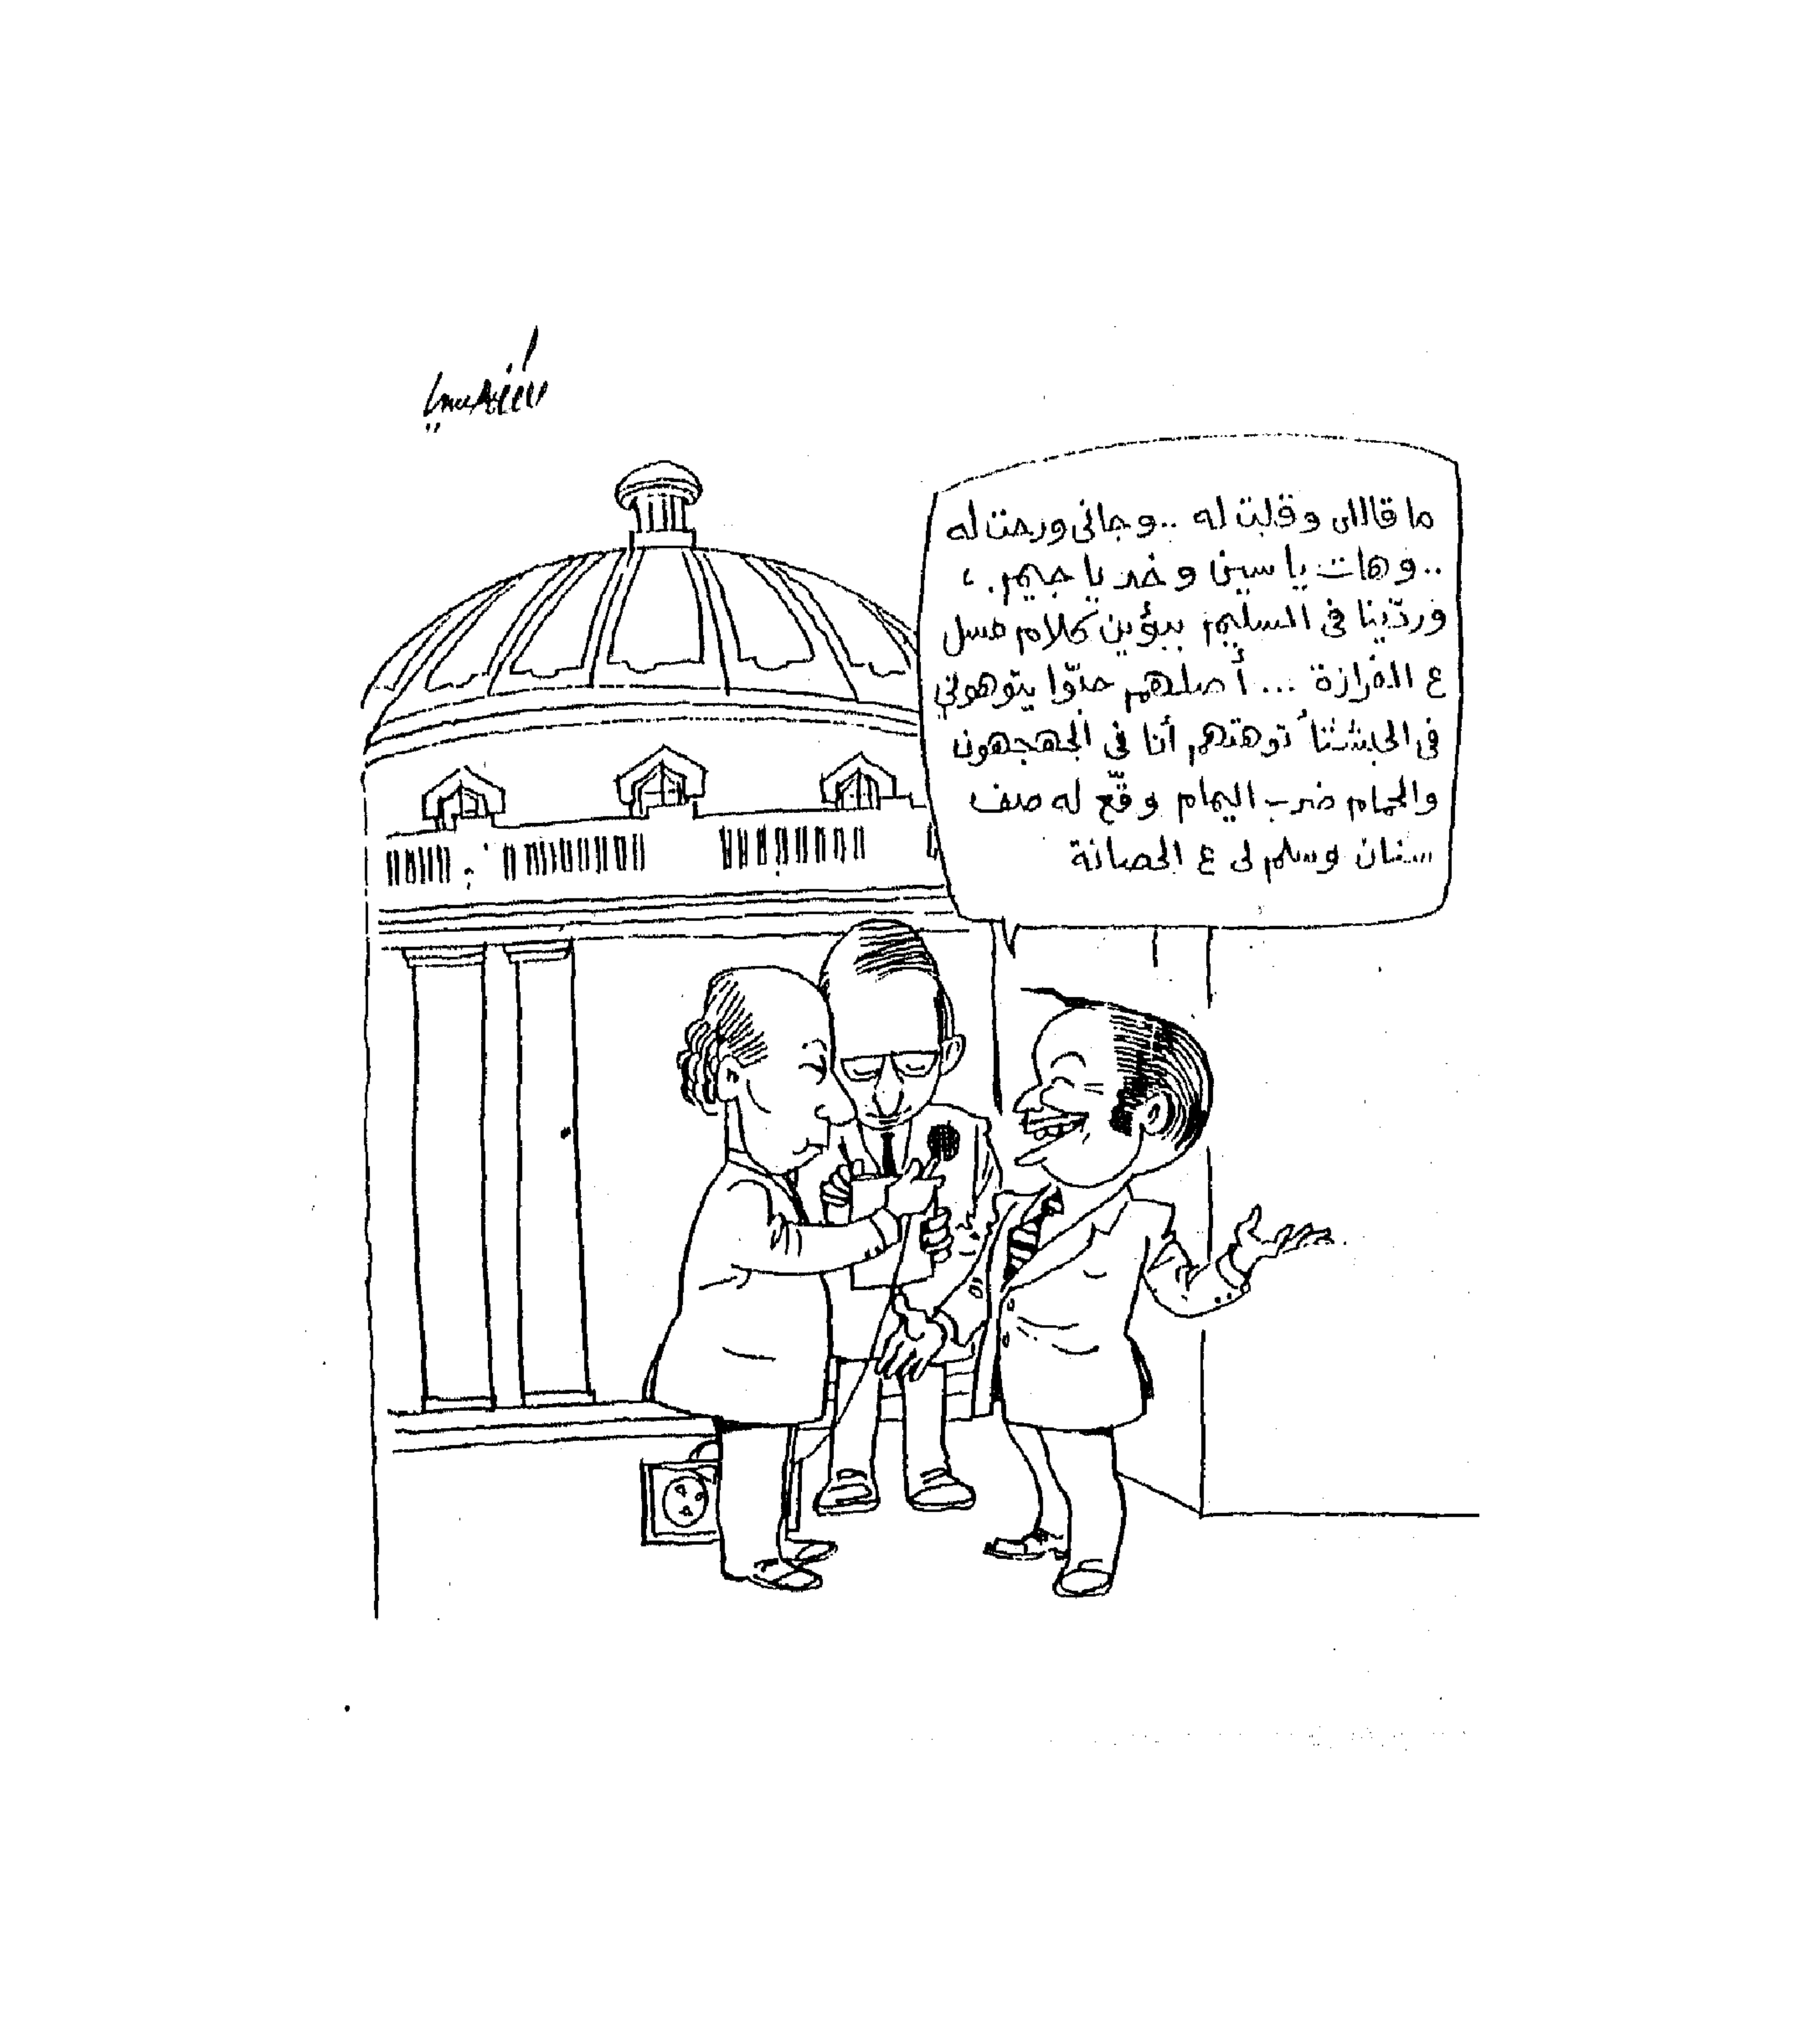 ما قاللى وقلت له .. وجانى ورحت له
.. وهات يا سين وخد يا جيم . ،
وردّينا فى السليم ببؤين كلام عسل
ع الفرازة ... أصلهم جدّوا يتوهونى
فى توهتهم أنا فى
والحمام ضرب اليمام وقّع له صف
سنان وسلم لى ع الحصانة